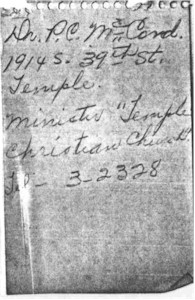 Dr. P.C. McCord.
1914 S. 39th St.
Temple.
Minister "Temple
Christian Church"
Tel- 3-2328